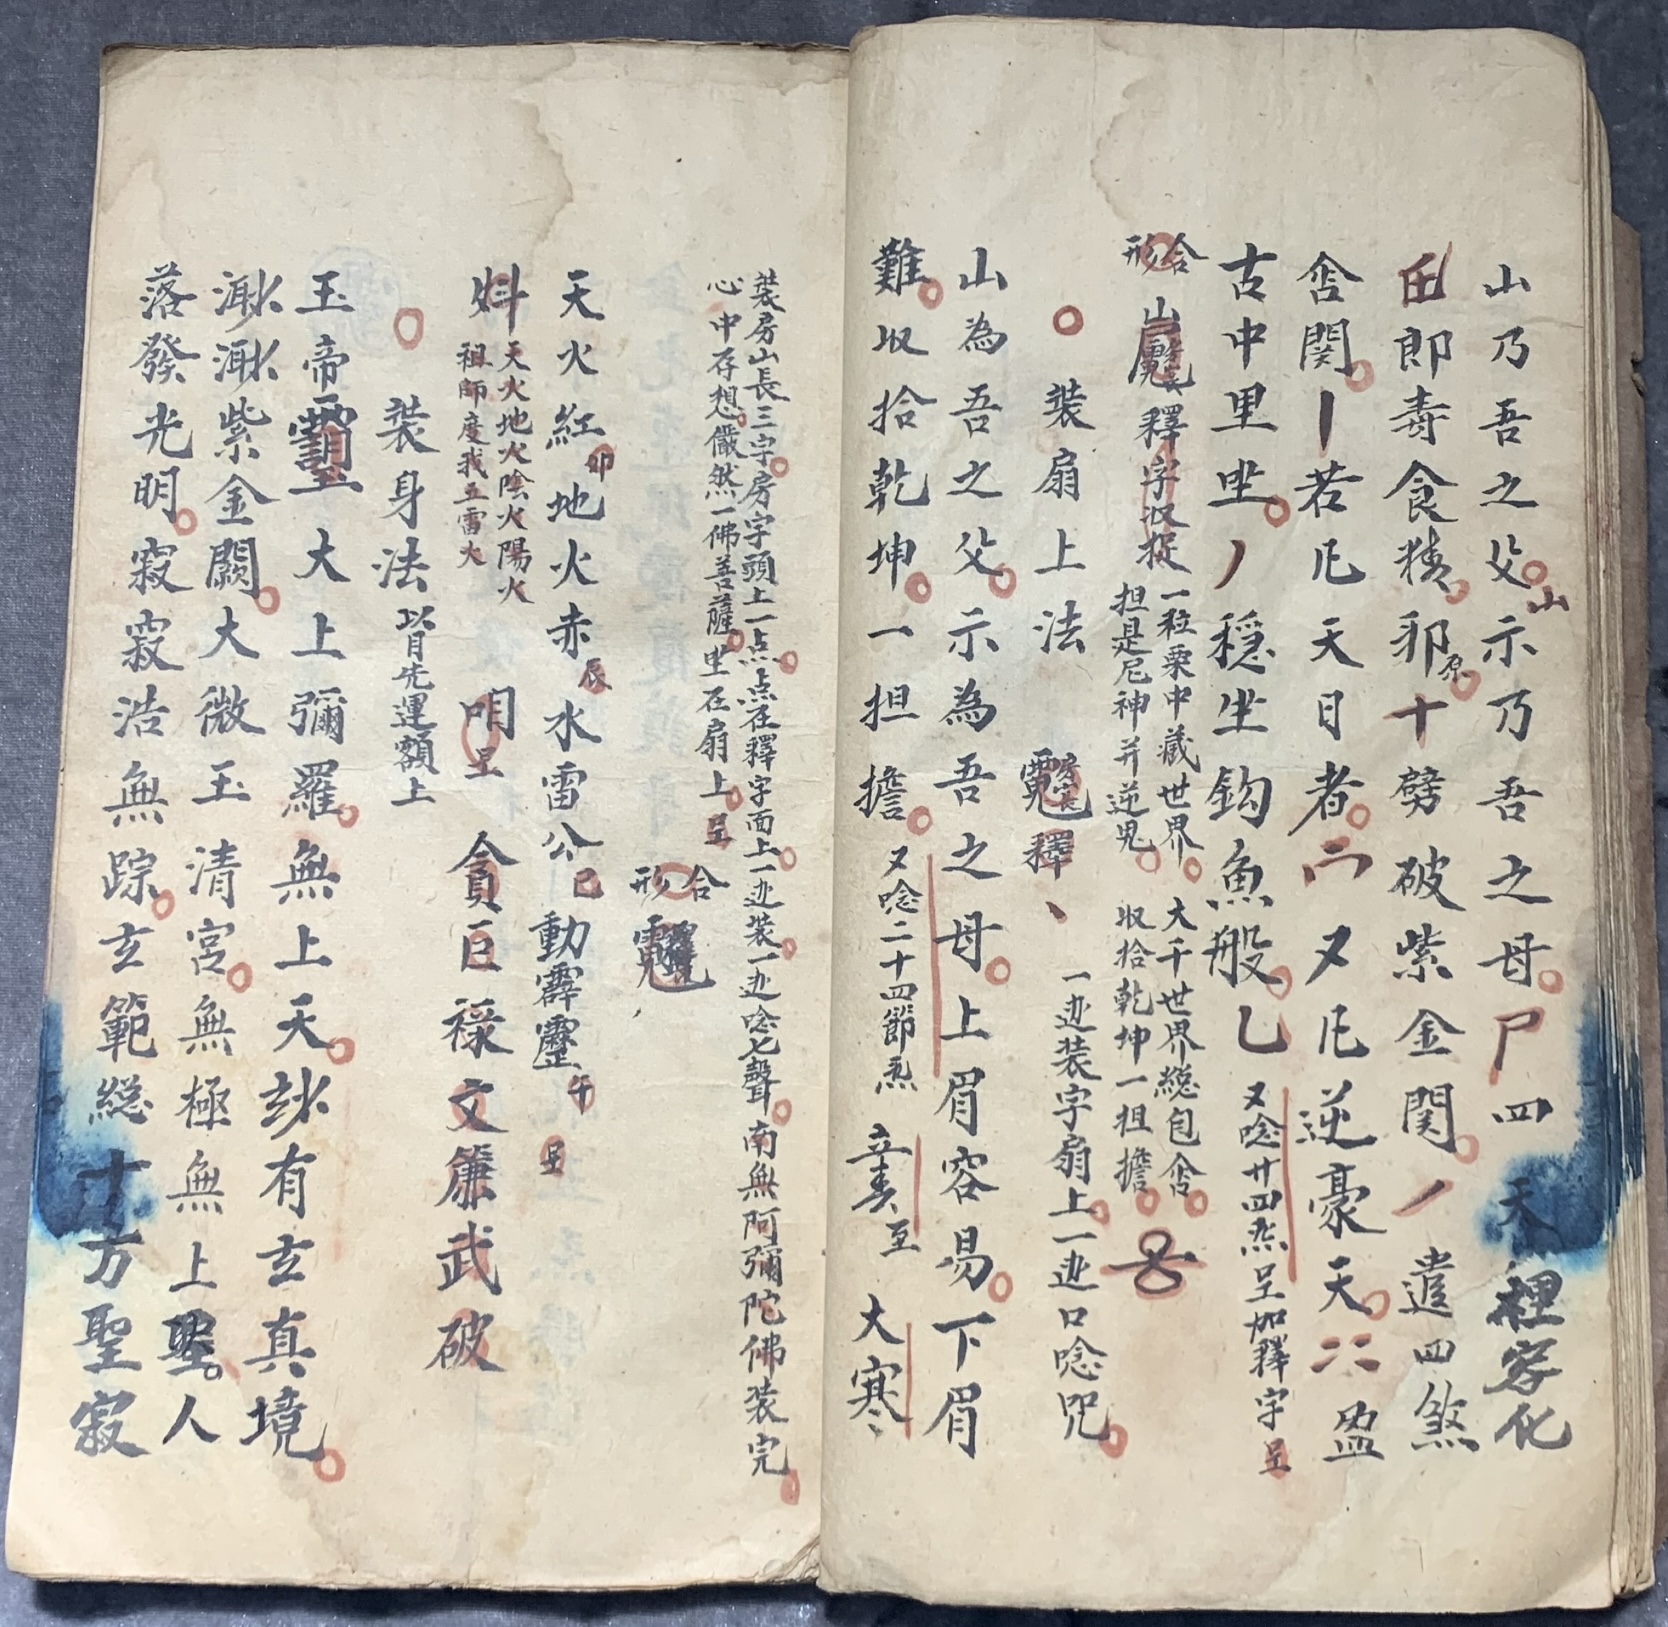 山乃吾之父山示乃吾之母尸四天裡容化
郎壽食精邪原十劈破紫金関丿遣四煞
唅関丨若凢天日者又凢逆豪天盈
古中里坐丿穩坐鈎魚般乚又唸廿四炁呈如釋字呈
合形
釋字収捉
一粒栗中藏世界大千世界總包唅
担是尼神并逆鬼収拾乾坤一担擔
裝扇上法釋丶一边装字扇上一边口唸咒
山為吾之父示為吾之母上眉容易下眉
難収拾乾坤一担擔又唸二十四節炁至大寒
裝房山長三字房字頭上一点点在釋字面上一边裝一边唸七聲南無阿彌陀佛装完
心中存想儼然一佛善薩坐在扇上呈
合形
天火紅卯地火赤辰水雷公巳動霹靂午呈
天火地火陰火陽火
祖師度我五雷火
呈貪巨祿文簾武破
裝身法以目先運額上
玉帝大上彌羅無上天玅有玄真境
渺渺紫金闕大微玉清宮無極無上聖人
落發光明寂寂浩無踪玄範總十方聖寂